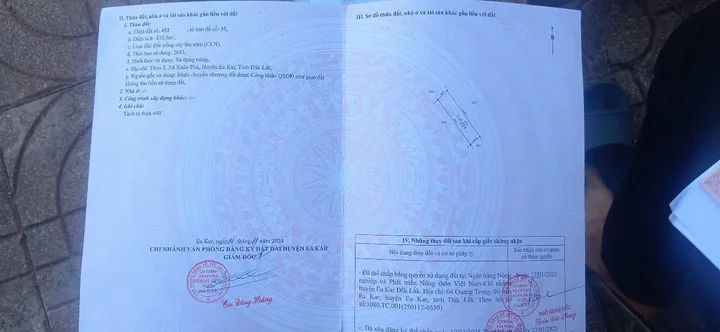 II. Thửa đất, nhà ở và tài sản khác gắn liền với đất
1. Thửa đất:
a. Thửa đất số: 452, tờ bản đồ số: 35,
b. Diện tích:
c. Loại đất: Đất trồng cây lâu năm (CLN);
d. Thời hạn sử dụng: 2043,
đ. Hình thức sử dụng: Sử dụng riêng,
e. Địa chỉ: Thôn 3, Xã Xuân Phú, Huyện Ea Kar, Tỉnh Đắk Lắk,
g. Nguồn gốc sử dụng: Nhận chuyển nhượng đất được Công nhận QSDĐ như giao đất không thu tiền sử dụng đất,
2. Nhà ở: -/-
3. Công trình xây dựng khác: -/-
4. Ghi chú:
Tách từ thửa 440.
Ea Kar, ngày tháng năm 2024
CHI NHÁNH VĂN PHÒNG ĐĂNG KÝ ĐẤT ĐAI HUYỆN EA KAR
GIÁM ĐỐC
Cao Đăng Hoàng
III. Sơ đồ thửa đất, nhà ở và tài sản khác gắn liền với đất
IV. Những thay đổi sau khi cấp giấy chứng nhận
Nội dung thay đổi và cơ sở pháp lý
Xác nhận của cơ quan
có thẩm quyền
- Đã thế chấp bằng quyền sử dụng đất tại Ngân hàng Nông
nghiệp và Phát triển Nông thôn Việt Nam-Chi nhánh
huyện Ea Kar Đắk Lắk. Địa chỉ: 04 Quang Trung, thị trấn
Ea Kar, huyện Ea Kar, tỉnh Đắk Lắk. Theo hồ sơ
số:1080.TC.001(250117-0559)
Ngày: 17/01/2025
PHÓ GIÁM ĐỐC
- Đã xóa đăng ký thế chấp
23/01/2025